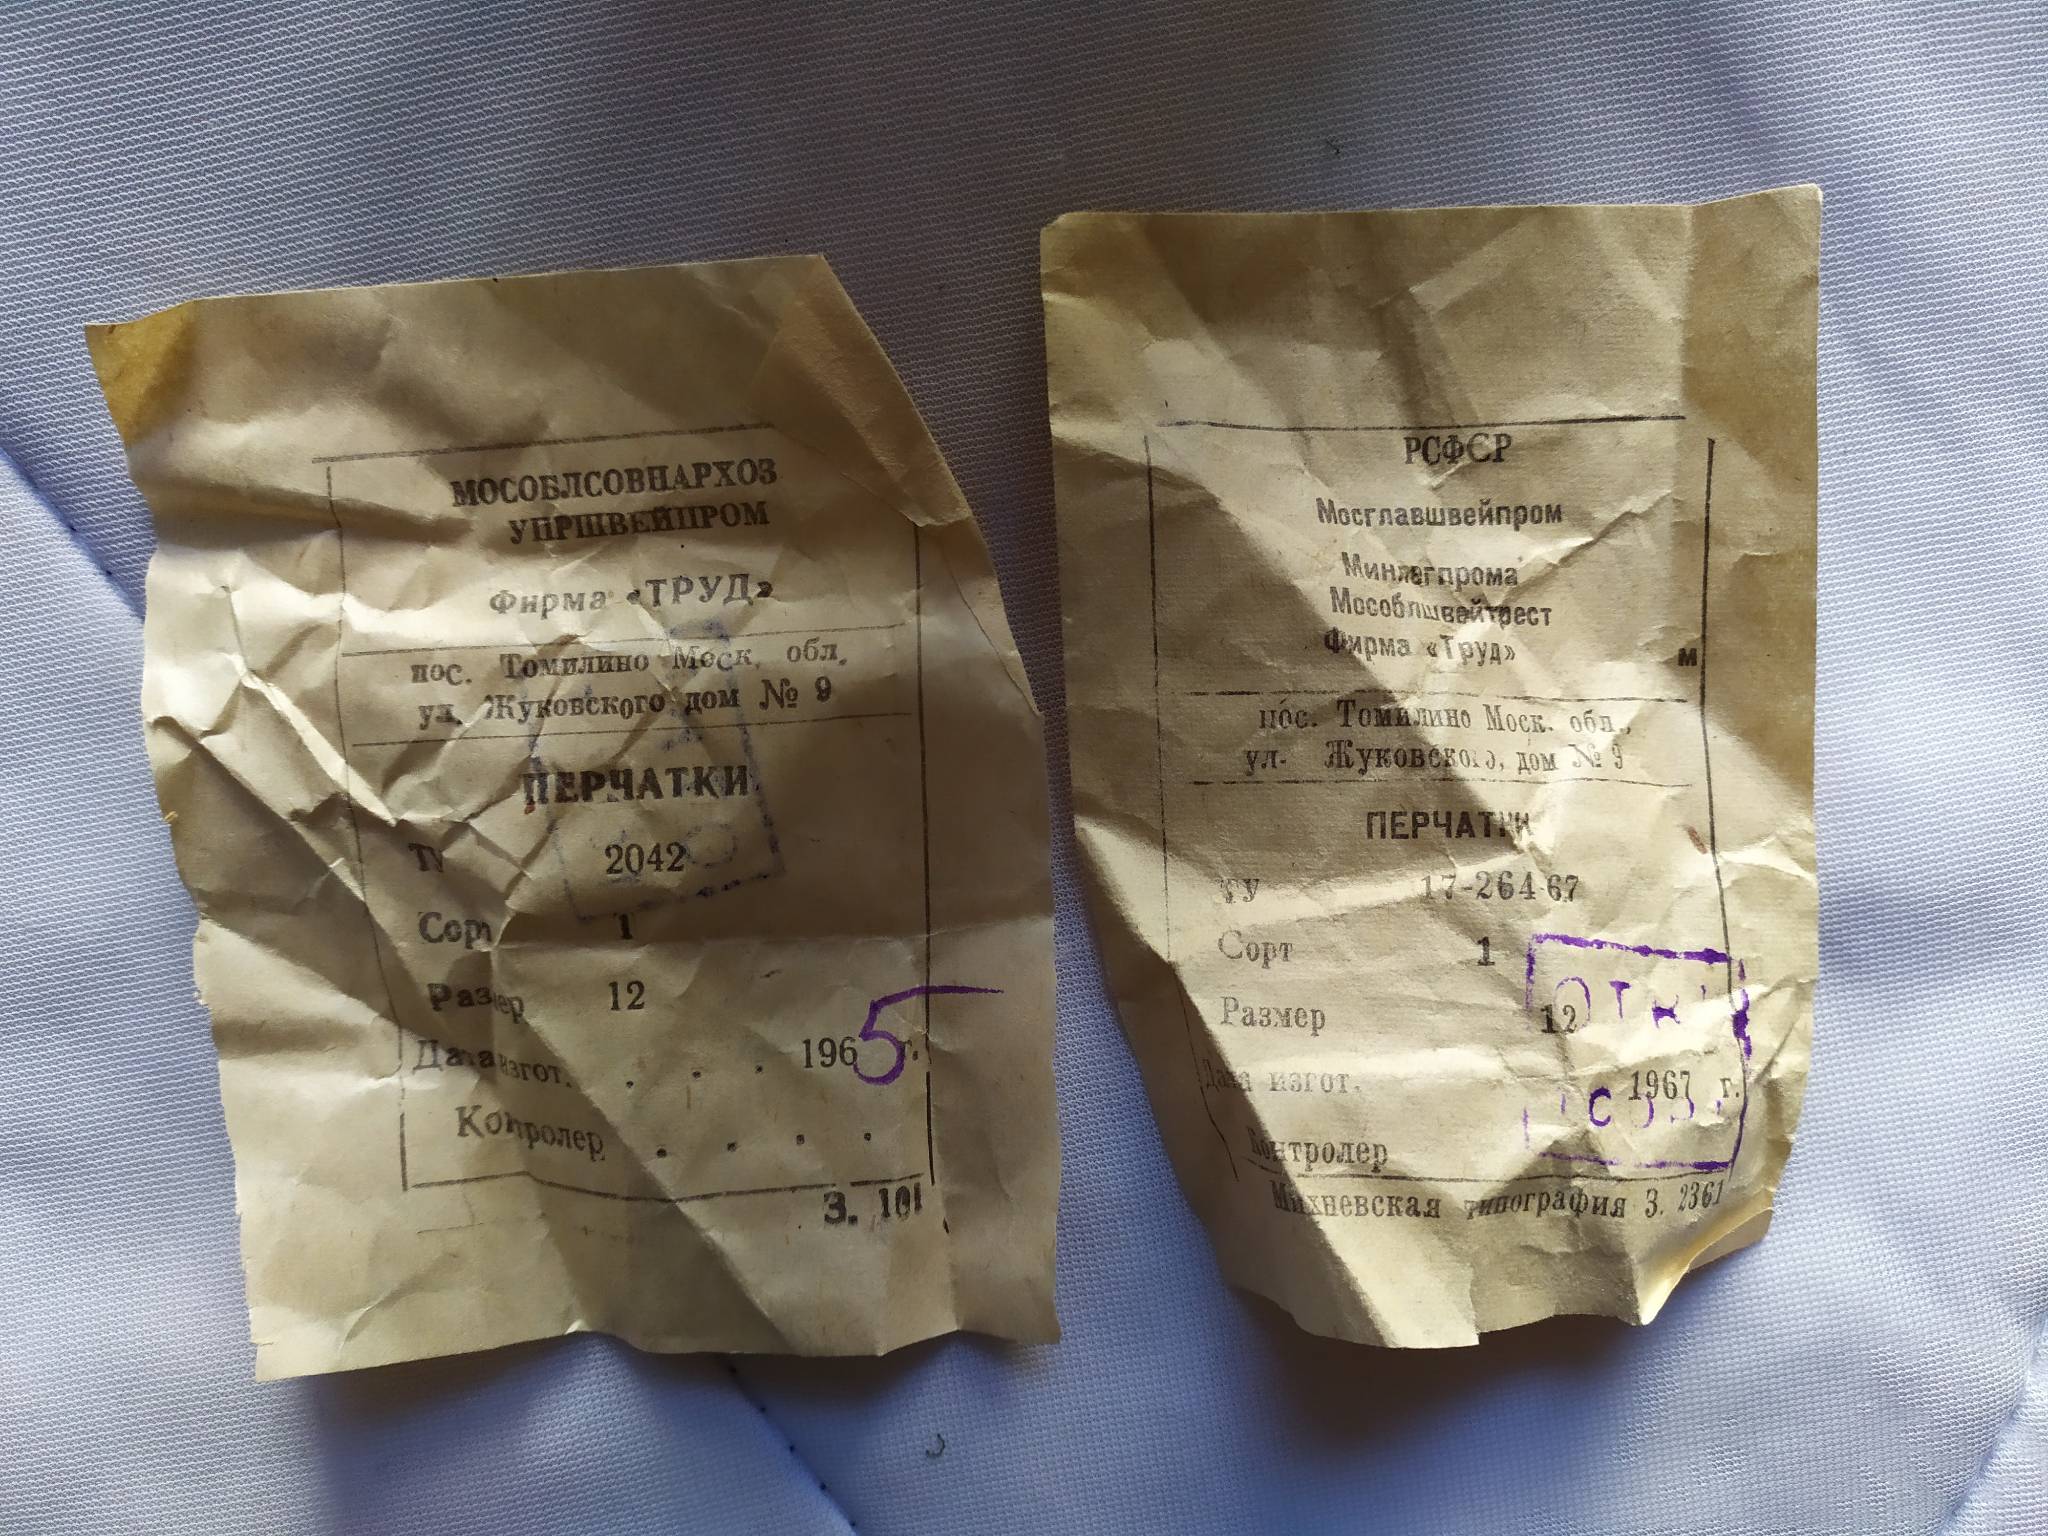 МОСОБЛСОВНАРХОЗ
УПРШВЕЙПРОМ
Фирма «ТРУД»
пос. Томилино Моск. обл.
ул. Жуковского дом № 9
ПЕРЧАТКИ
ТУ 2042
Сорт 1
Размер 12
Дата изгот. . . . 1965 г.
Контролер . . . .
З. 101
РСФСР
Мосглавшвейпром
Минлегпрома
Мособлшвейтрест
Фирма «Труд»
м
пос. Томилино Моск. обл.,
ул. Жуковского, дом № 9
ПЕРЧАТКИ
ТУ 17-264-67
Сорт 1
Размер 12
Дата изгот. 1967 г.
Контролер
Михневская типография З. 2361
ОТК